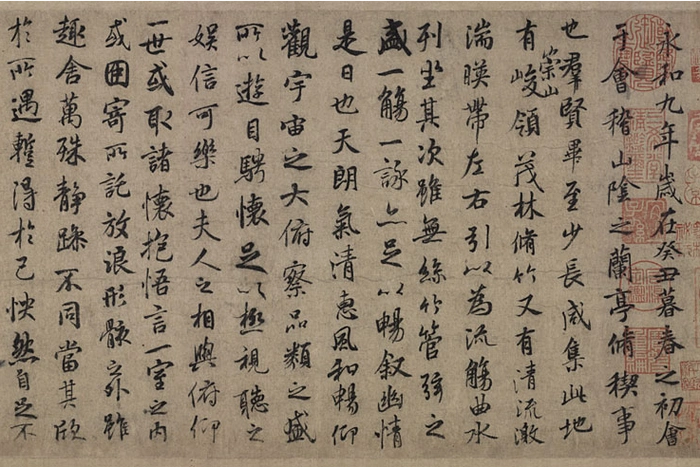 永和九年歲在癸丑暮春之初會
于會稽山陰之蘭亭脩禊事
也羣賢畢至少長咸集此地
有崇山峻領茂林脩竹又有清流激
湍暎帶左右引以為流觴曲水
列坐其次雖無絲竹管弦之
盛一觴一詠亦足以暢叙幽情
是日也天朗氣清惠風和暢仰
觀宇宙之大俯察品類之盛
所以遊目騁懷足以極視聽之
娛信可樂也夫人之相與俯仰
一世或取諸懷抱悟言一室之內
或因寄所託放浪形骸之外雖
趣舍萬殊靜躁不同當其欣
於所遇蹔得於己怏然自足不